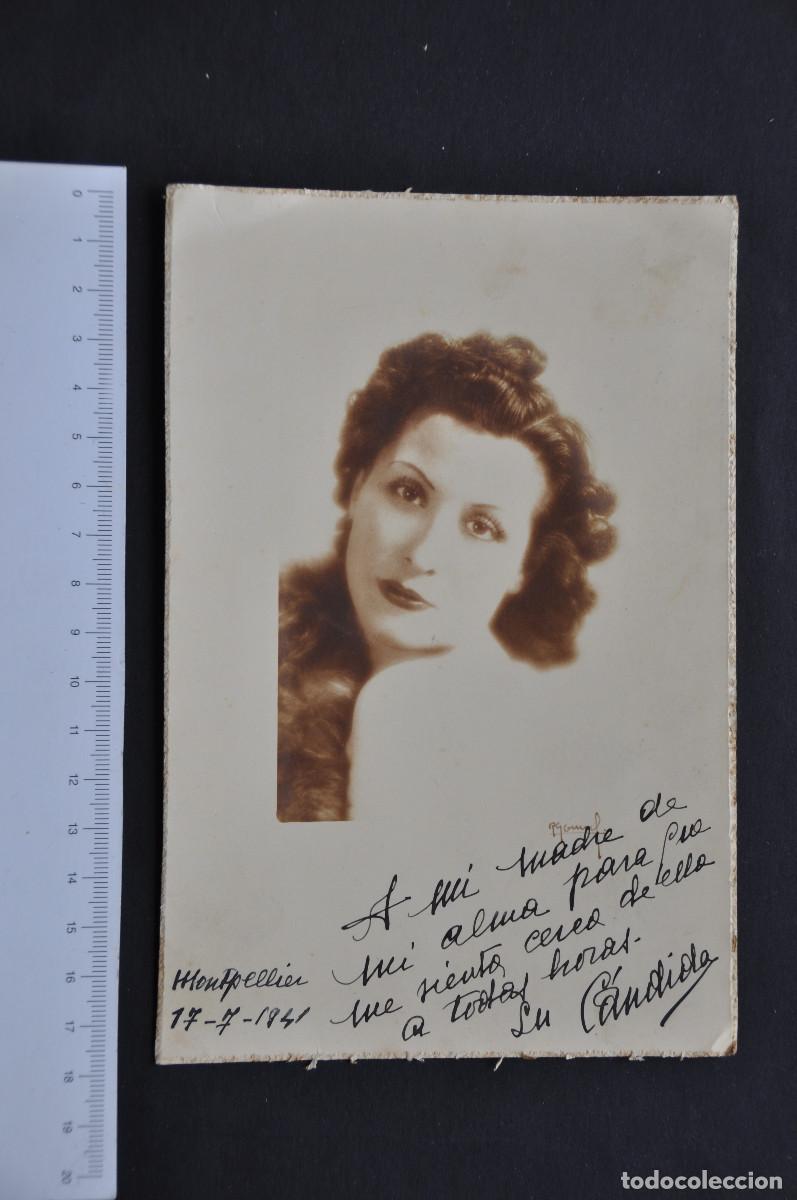 0
1
2
3
4
5
6
7
8
9
10
11
12
13
14
15
16
17
18
19
20
A mi madre de
mi alma para que
me sienta cerca de ella
a todas horas.
su Cándida
Montpellier
17-7-1941
todocoleccion